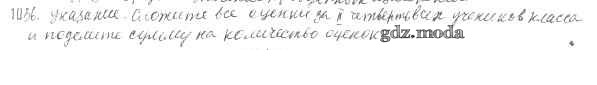 1036. Указание. Сложите все оценки за II четверть всех учеников класса
и поделите сумму на количество оценок gdz.moda